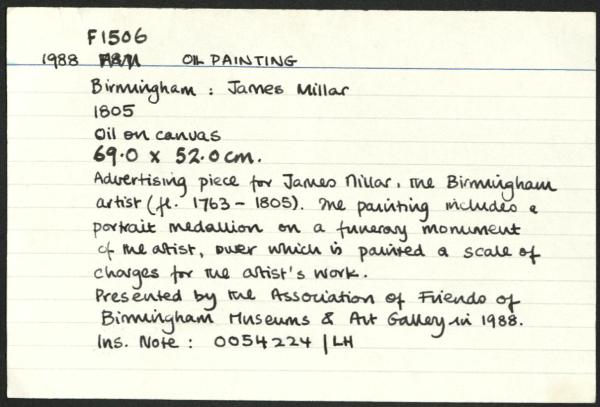 F1506
1988 OIL PAINTING
Birmingham : James Millar
1805
Oil on canvas
69.0 x 52.0cm.
Advertising piece for James Millar, the Birmingham
artist (fl. 1763 - 1805). The painting includes a
portrait medallion on a funerary monument
of the artist, over which is painted a scale of
charges for the artist's work.
Presented by the Association of Friends of
Birmingham Museums & Art Gallery in 1988.
Ins. Note : 0054224 | LH